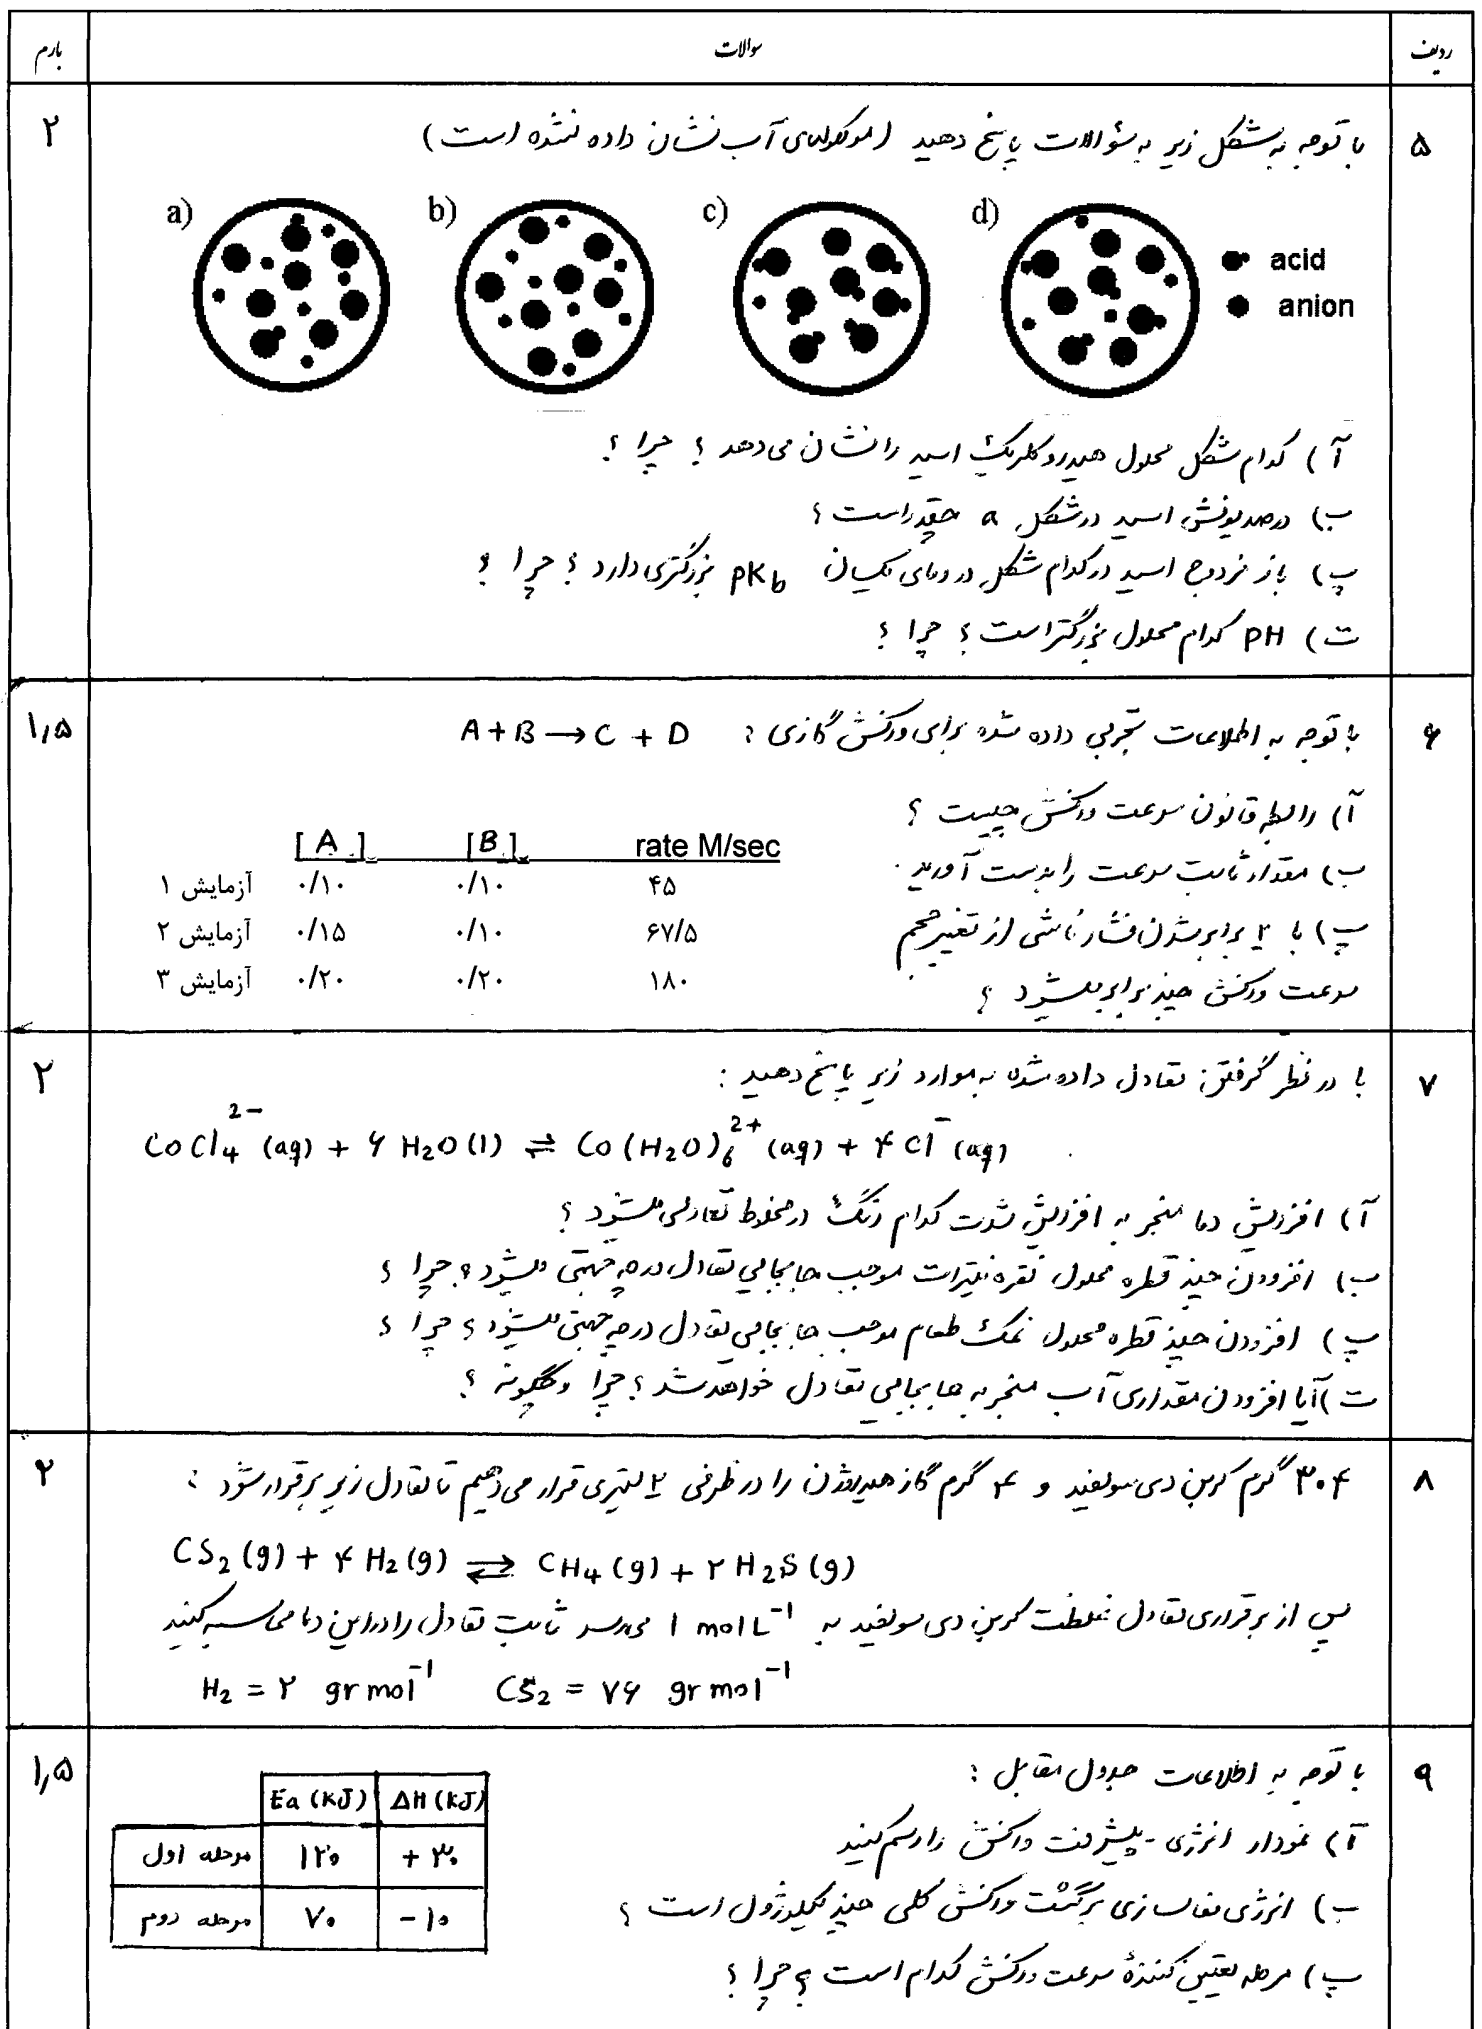 ردیف سوالات بارم
۵ با توجه به شکل زیر به سئوالات پاسخ دهید (مولکولهای آب نشان داده نشده است) ۲
a) b) c) d)
acid
anion
آ) کدام شکل محلول هیدروکلریک اسید را نشان می‌دهد ؟ چرا ؟
ب) درصد یونش اسید در شکل a چقدر است ؟
پ) باز مزدوج اسید در کدام شکل در دمای یکسان pKb بزرگتری دارد ؟ چرا ؟
ت) pH کدام محلول بزرگتر است ؟ چرا ؟
۶ با توجه به اطلاعات تجربی داده شده برای واکنش گازی : A + B → C + D ۱٫۵
آ) رابطه قانون سرعت واکنش چیست ؟
ب) مقدار ثابت سرعت را بدست آورید .
پ) با ۲ برابر شدن فشار ناشی از تغییر حجم
سرعت واکنش چند برابر می‌شود ؟
[A] [B] rate M/sec
آزمایش ۱ ۰/۱۰ ۰/۱۰ ۴۵
آزمایش ۲ ۰/۱۵ ۰/۱۰ ۶۷/۵
آزمایش ۳ ۰/۲۰ ۰/۲۰ ۱۸۰
۷ با در نظر گرفتن تعادل داده شده به موارد زیر پاسخ دهید : ۲
CoCl₄²⁻ (aq) + ۶ H₂O (l) ⇌ Co(H₂O)₆²⁺ (aq) + ۴ Cl⁻ (aq)
آ) افزایش دما منجر به افزایش شدت کدام رنگ در مخلوط تعادلی می‌شود ؟
ب) افزودن چند قطره محلول نقره نیترات موجب جابجایی تعادل در چه جهتی می‌شود ؟ چرا ؟
پ) افزودن چند قطره محلول نمک طعام موجب جابجایی تعادل در چه جهتی می‌شود ؟ چرا ؟
ت) آیا افزودن مقداری آب منجر به جابجایی تعادل خواهد شد ؟ چرا و چگونه ؟
۸ ۳۰۴ گرم کربن دی سولفید و ۴ گرم گاز هیدروژن را در ظرفی ۲ لیتری قرار می‌دهیم تا تعادل زیر برقرار شود : ۲
CS₂ (g) + ۴ H₂ (g) ⇌ CH₄ (g) + ۲ H₂S (g)
پس از برقراری تعادل غلظت کربن دی سولفید به ۱ mol L⁻¹ می‌رسد ثابت تعادل را در این دما محاسبه کنید
H₂ = ۲ gr mol⁻¹ CS₂ = ۷۶ gr mol⁻¹
۹ با توجه به اطلاعات جدول مقابل : ۱٫۵
آ) نمودار انرژی - پیشرفت واکنش را رسم کنید
ب) انرژی فعالسازی برگشت واکنش کلی چند کیلوژول است ؟
پ) مرحله تعیین کنندهٔ سرعت واکنش کدام است ؟ چرا ؟
Ea (kJ) ΔH (kJ)
مرحله اول ۱۲۰ +۳۰
مرحله دوم ۷۰ -۱۰